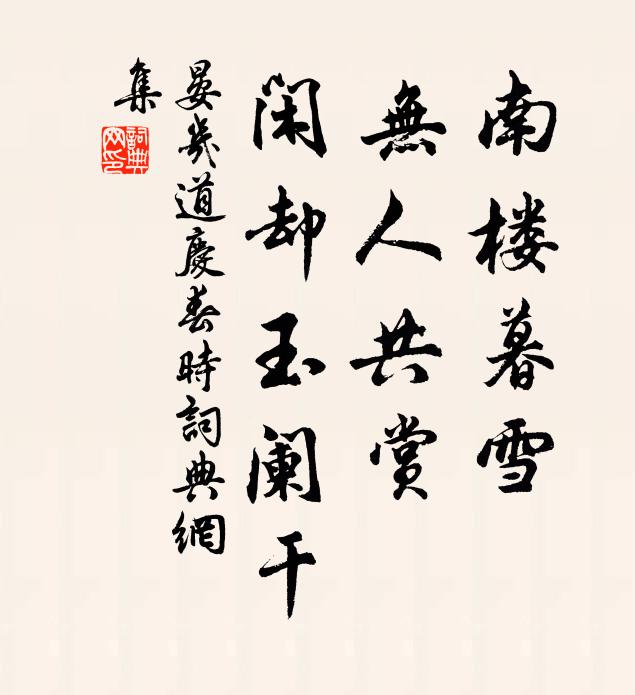 南楼暮雪
無人共賞
闲却玉阑干
晏幾道慶春時詞典網
集
詞典
网印